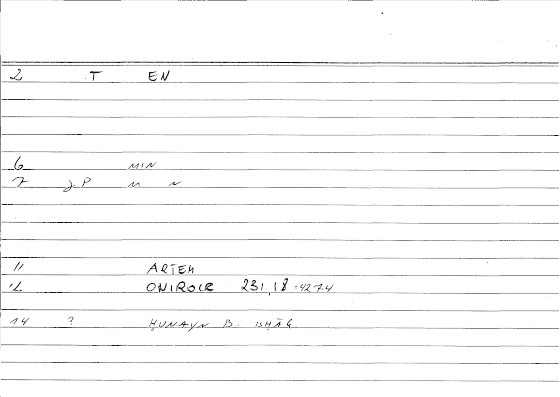 2 .T EN
6 MIN
7 J.P M N
11 ARTEM
12 ONIROCR 231,18-427.4
14 ? ḤUNAYN B. ISḤĀQ